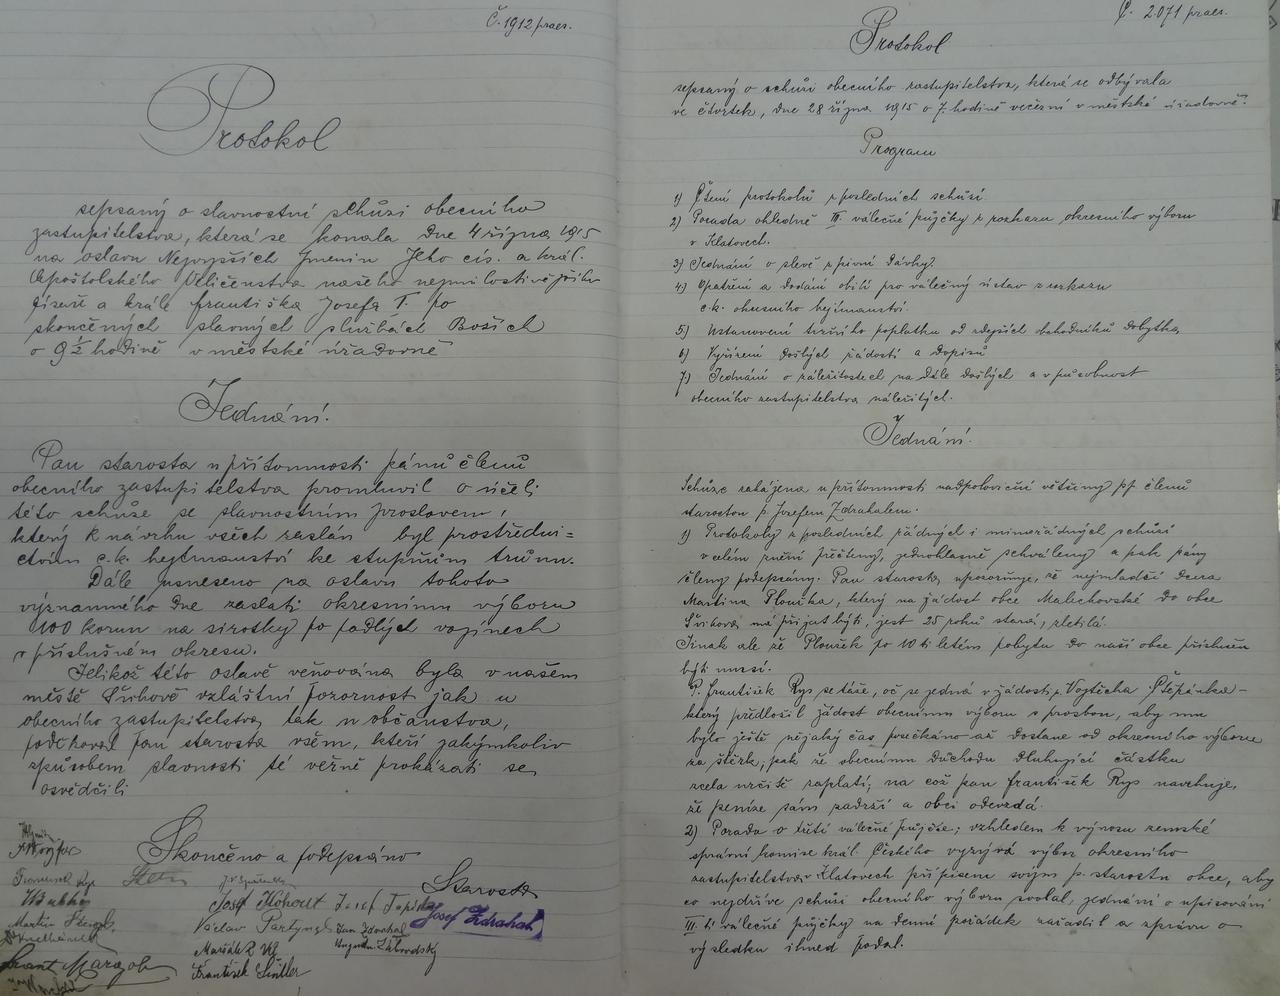 Č. 1912 praes.
Protokol
sepsaný o slavnostní schůzi obecního
zastupitelstva, která se konala dne 4 října 1915
na oslavu Nejvyšších Jmenin Jeho cis. a král.
Apoštolského Veličenstva našeho nejmilostivějšího
císaře a krále Františka Josefa I. po
skončených slavných službách Božích
o 9½ hodině v městské úřadovně
Jednání.
Pan starosta u přítomnosti pánů členů
obecního zastupitelstva promluvil o účeli
této schůze se slavnostním proslovem,
který k návrhu všech zaslán byl prostředni=
ctvím c.k. hejtmanství ke stupňům trůnu.
Dále usneseno na oslavu tohoto
významného dne zaslati okresnímu výboru
100 korun na sirotky po padlých vojínech
z příslušném okresu.
Jelikož této oslavě věnována byla v našem
městě Švihově vzláštní pozornost jak u
obecního zastupitelstva, tak u občanstva,
poděkoval pan starosta všem, kteří jakýmkoliv
způsobem slavnosti té věrně prokázati se
osvědčili
Skončeno a podepsáno
Starosta
Josef Zdrahal
František Rys
Josef Kohout
Václav
Jan Zdrahal
František
Č. 2071 praes.
Protokol
sepsaný o schůzi obecního zastupitelstva, která se odbývala
ve čtvrtek, dne 28 října 1915 o 7. hodině večerní v městské úřadovně.
Program
1) Čtení protokolů z posledních schůzí
2) Porada ohledně III. válečné půjčky z rozkazu okresního výboru
v Klatovech.
3) Jednání o slevě z pivní dávky.
4) Opatření a dodání obilí pro válečný ústav z rozkazu
c.k. okresního hejtmanství.
5) Ustanovení tržního poplatku od zdejších obchodníků dobytka
6) Vyřízení došlých žádostí a dopisů
7) Jednání o záležitostech na dále došlých a v působnost
obecního zastupitelstva náležitých.
Jednání.
Schůze zahájena u přítomnosti nadpoloviční většiny pp členů
starostou p. Josefem Zdrahalem.
1) Protokoly z posledních řádných i mimořádných schůzí
v celém znění přečteny, jednohlasně schváleny a pak pány
členy podepsány. Pan starosta upozorňuje, že nejmladší dcera
Martina Plouška, který na žádost obce Malechovské do obce
Švihova má přijat býti, jest 25 roků stará, zletilá.
Jinak ale že Ploušek po 10ti letém pobytu do naší obce příslušen
býti musí.
P. František Rys se táže, oč se jedná v žádosti p. Vojtěcha Štěpánka-
který předložil žádost obecnímu výboru s prosbou, aby mu
bylo ještě nějaký čas posečkáno až dostane od okresního výboru
za štěrk, pak že obecnímu důchodu dlužující částku
zcela určitě zaplatí; na což pan František Rys navrhuje,
že peníze sám zadrží a obci odevzdá.
2) Porada o třetí válečné půjčce; vzhledem k výnosu zemské
správní komise král. Českého vyzývá výbor okresního
zastupitelstva v Klatovech přípisem svým p. starostu obce, aby
co nejdříve schůzi obecního výboru svolal, jednání o upisování
III. ti válečné půjčky na denní pořádek zařadil a zprávu o
výsledku ihned podal.